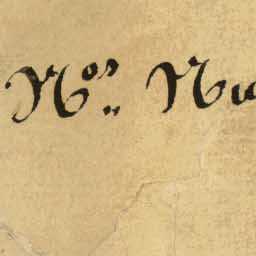 Nos. Nu